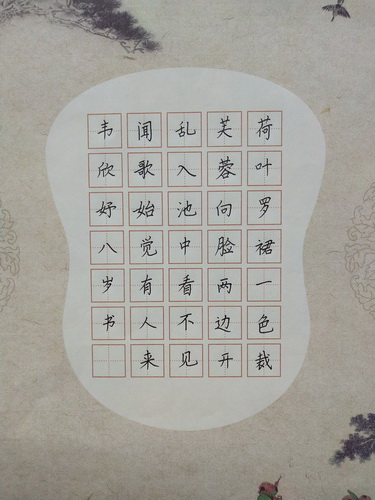 荷叶罗裙一色裁
芙蓉向脸两边开
乱入池中看不见
闻歌始觉有人来
韦欣妤八岁书